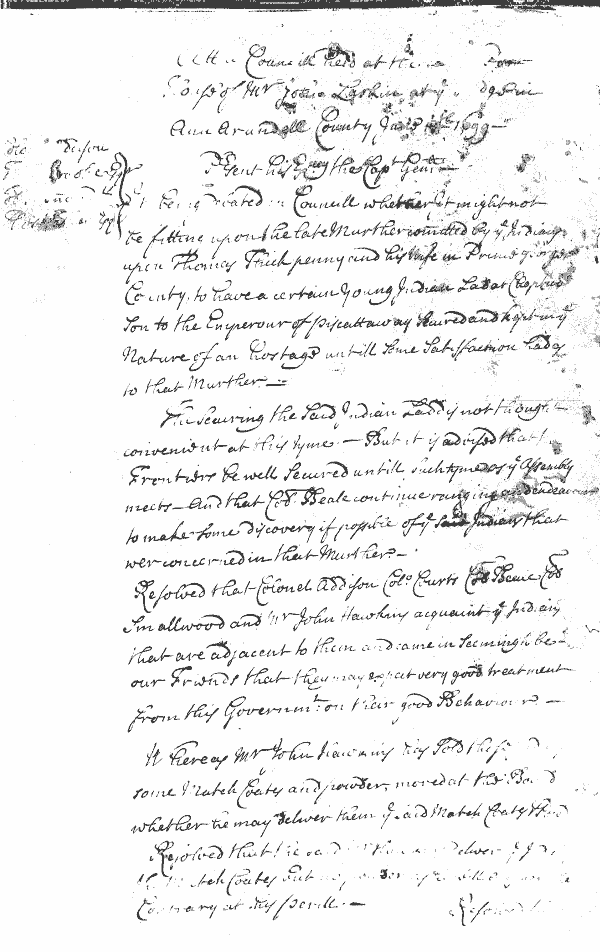 Att a Councill held at the
house of Mr John Larkin at ye
Ann Arundell County June 1699
Present his Exncy the Capt Genll
It being moved in Councill whether it might not
be fitting upon the late Murther comitted by ye Indians
upon Thomas Thickpenny and his Wife in Prince Georges
County to have a certain Young Indian Lad at Choptico
Son to the Emperour of Piscattaway Secured and kept in ye
Nature of an hostage untill some Satisfaction had as
to that Murther
The Securing the Said Indian Ladd is not thought
convenient at this tyme. But it is advised that
Frontiers be well Secured untill such tyme as ye Assembly
meets And that Coll Beale continue ranging and endeavour
to make some discovery if possible of ye Said Indians that
wer concerned in that Murther
Resolved that Colonel Addison Colo Courts Coll Beale Coll
Smallwood and Mr John Hawkins acquaint ye Indians
that are adjacent to them and came in Seemingly to be
our Friends that they may expect very good treatment
from this Governmt on their good Behaviour
Whereas Mr John Hawkins has Sold these
some Match Coates and powder, moved at the Board
whether he may deliver them ye said Match Coates &
Resolved that he deliver ye
Match Coates but no powder
Contrary at his perill
Resolved